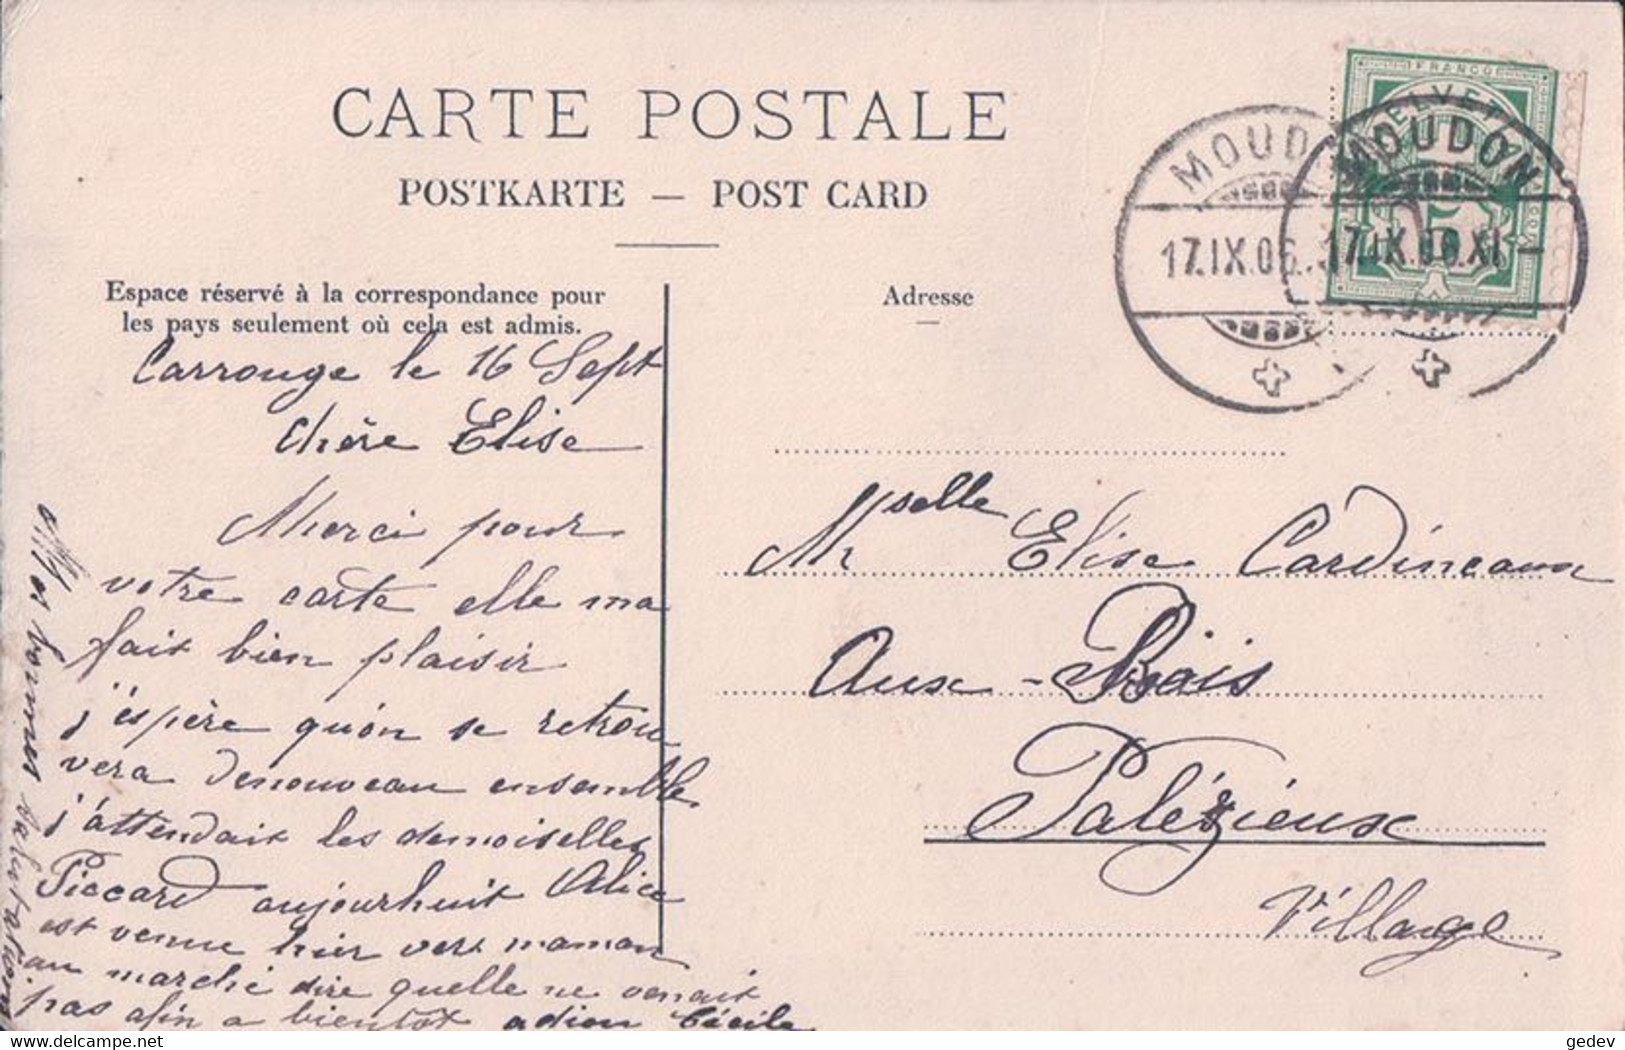 CARTE POSTALE
POSTKARTE — POST CARD
Espace réservé à la correspondance pour
les pays seulement où cela est admis.
Adresse
FRANCO
HELVETIA
5
MOUDON
17.IX.06.
MOUDON
17.IX.06.XI–
Carrouge le 16 Sept
Chère Elise
Merci pour
votre carte elle ma
fait bien plaisir
j'éspère qu'on se retrou
vera denouveau ensemble
j'attendait les demoiselles
Piccard aujourhuit Alice
est venue hier vers maman
au marché dire quelle ne venait
pas afin a bientôt adieu Cécile
les bonnes salutations
Mselle Elise Cardineaux
Aux-Bois
Palézieux
Village
www.delcampe.net
gedev